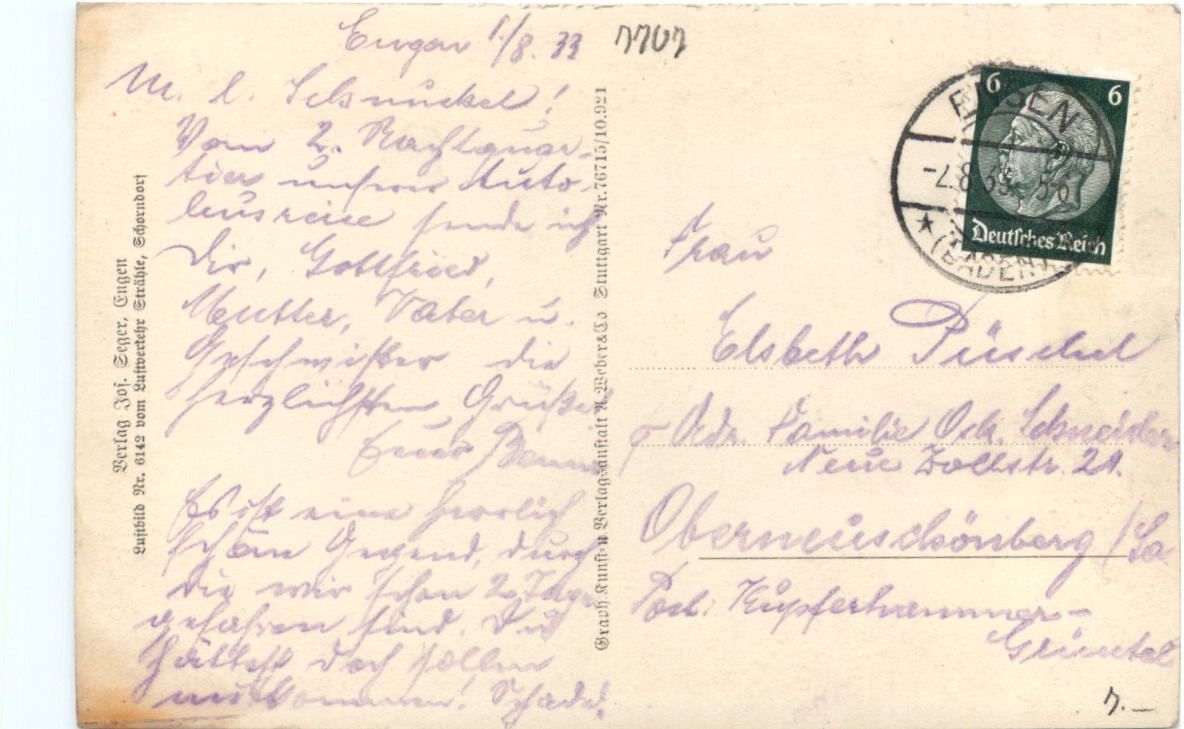 Engen 1/8.33
7707
M. l. Schnuckel!
Vom 2. Nachtquar-
tier unserer Auto-
busreise sende ich
Dir, Gottfried,
Mutter, Vater u.
Geschwister die
herzlichsten Grüße
Euer
Es ist eine herrlich
schöne Gegend, durch
die wir schon 2 Tage
gefahren sind. Du
hättest doch sollen
mitkommen! Schade!
Verlag Jos. Seger, Engen
Luftbild Nr. 6142 vom Luftverkehr Strähle, Schorndorf
Graph. Kunst- u. Verlagsanstalt A. Weber & Co Stuttgart Nr. 76715/10.921
6 6
Deutsches Reich
ENGEN
-2.8.33. 5-6
(BADEN)
Frau
Elsbeth Püschel
Adr. Familie Osk. Schneider
Neue Zollstr. 21.
Oberneuschönberg /Sa
Post: Kupferhammer-
Grüntal
7.—